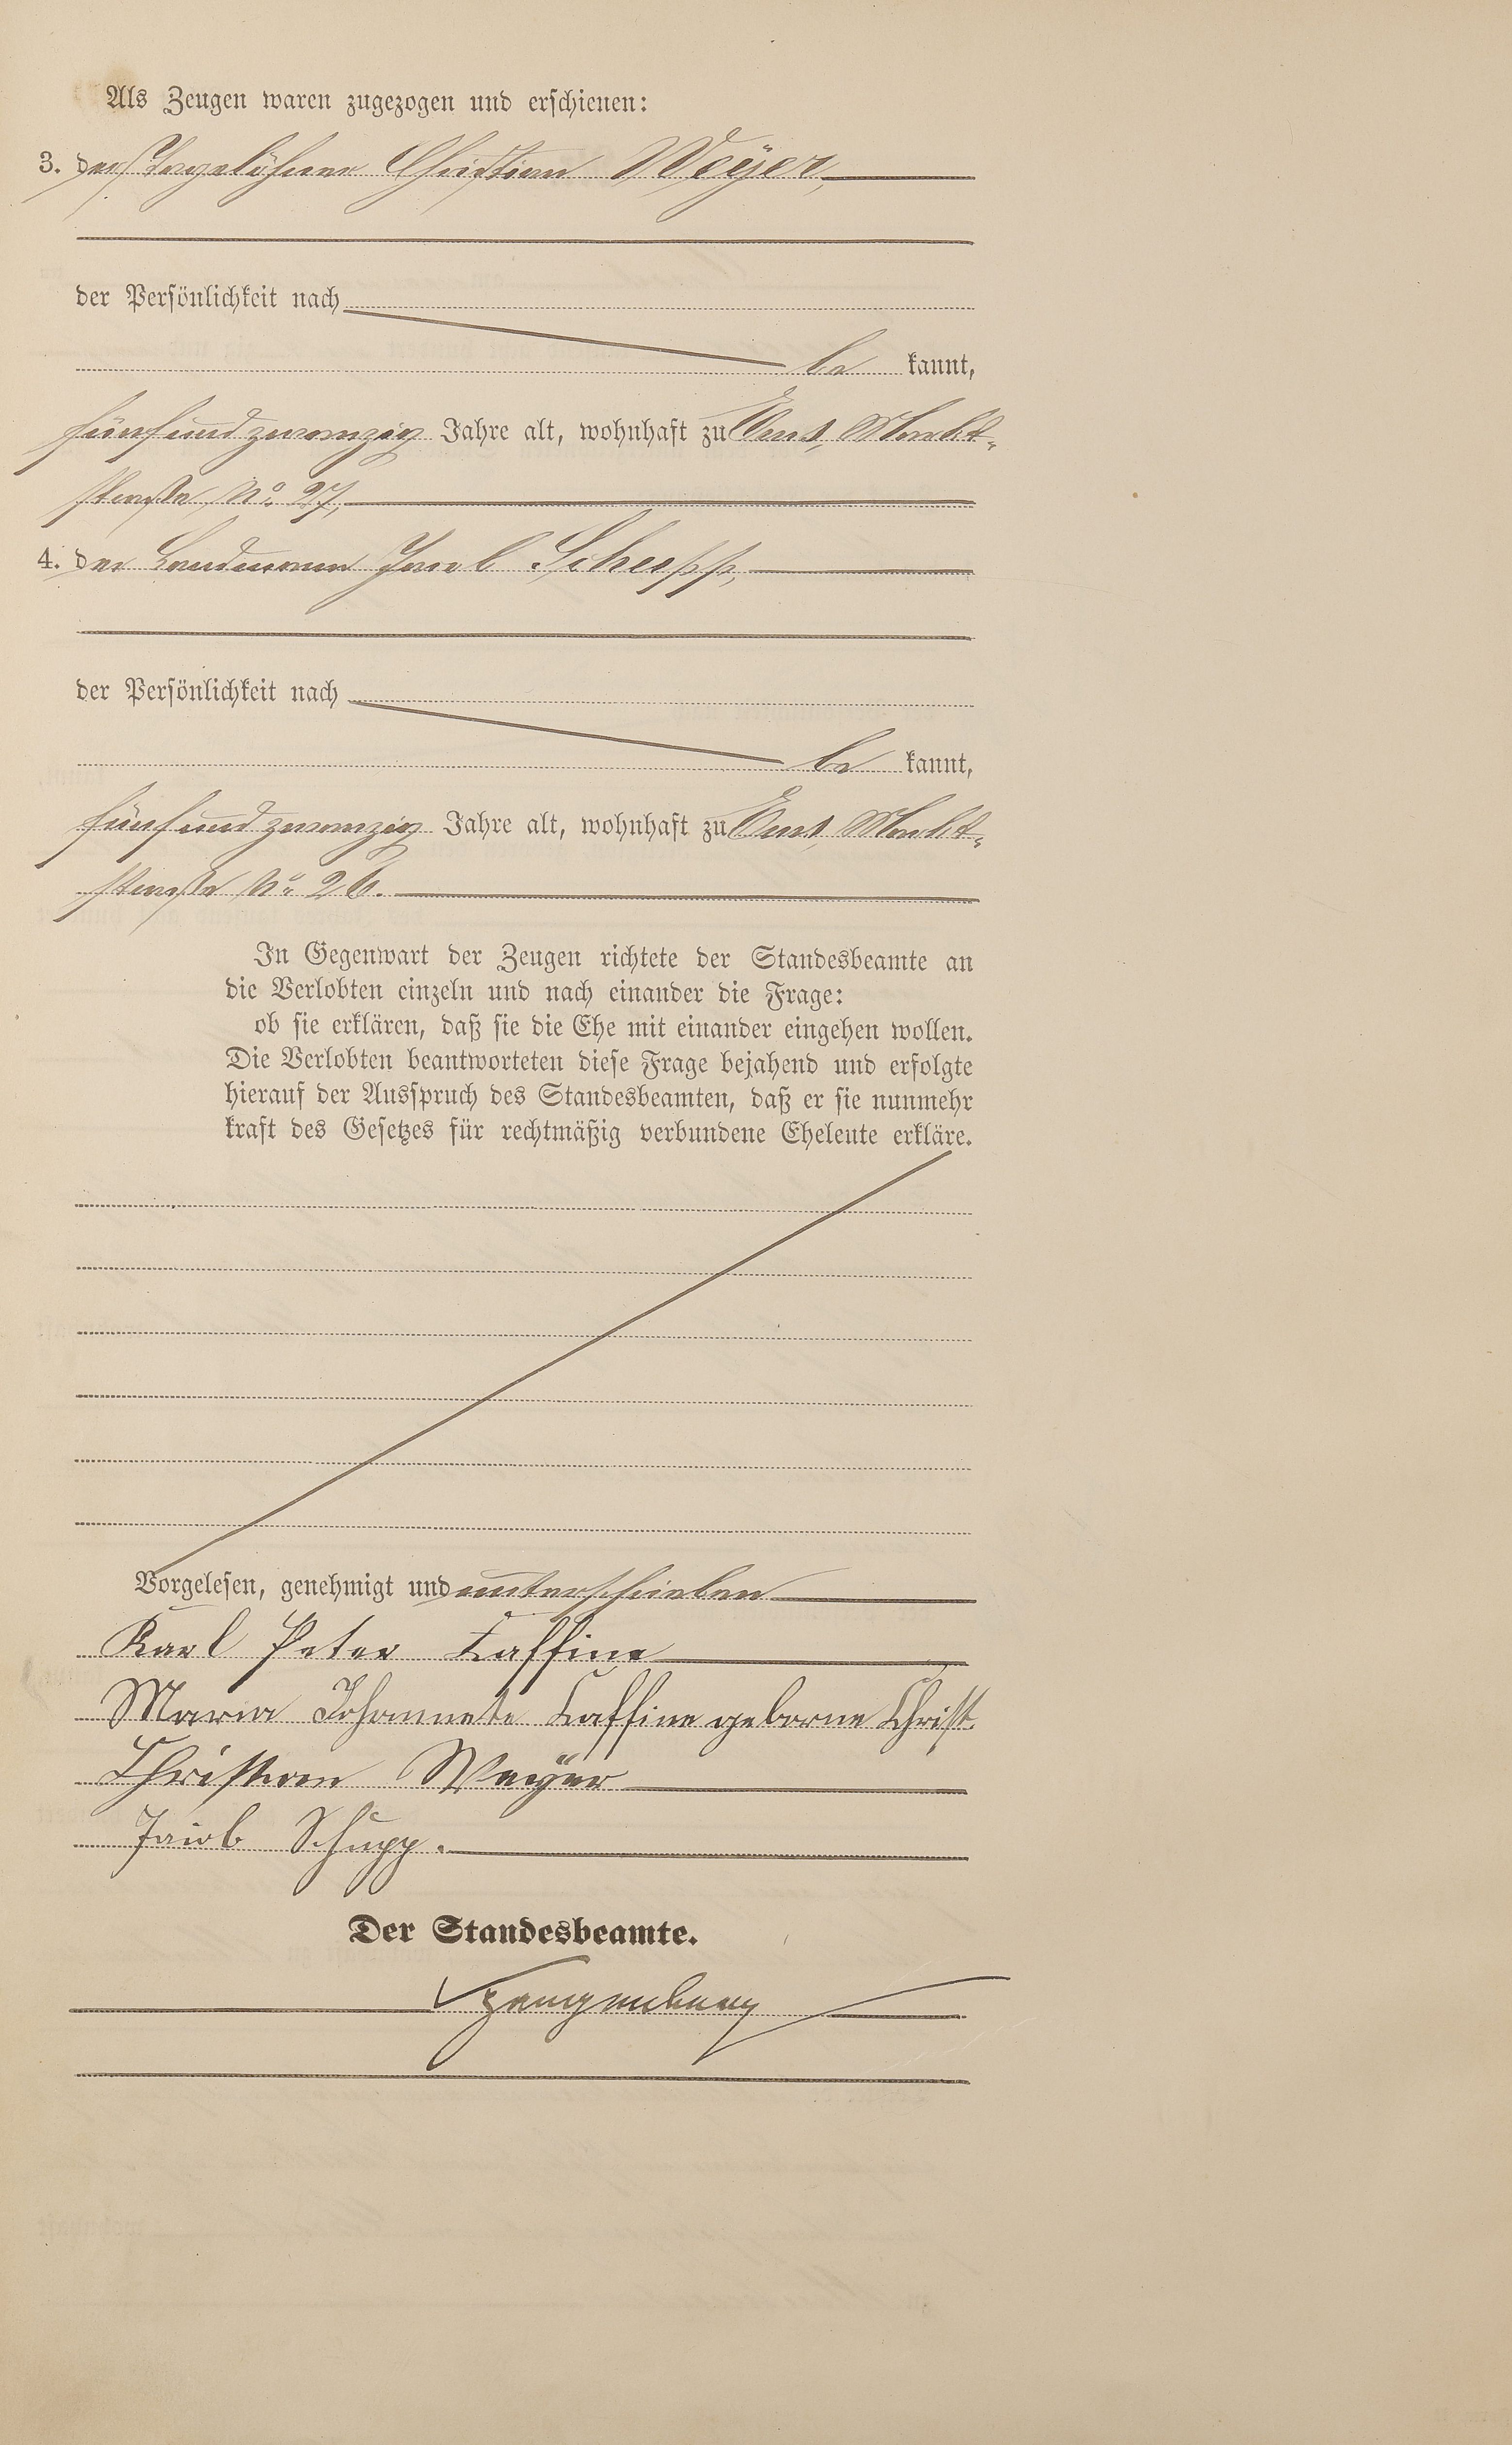 Als Zeugen waren zugezogen und erschienen:
3. der Tagelöhner Christian Weÿer,
der Persönlichkeit nach
be kannt,
fünfundzwanzig Jahre alt, wohnhaft zu Ems, Markt-
straße No. 27,
4. der Landmann Jacob Schupp,
der Persönlichkeit nach
be kannt,
fünfundzwanzig Jahre alt, wohnhaft zu Ems, Markt-
straße No. 26.
In Gegenwart der Zeugen richtete der Standesbeamte an
die Verlobten einzeln und nach einander die Frage:
ob sie erklären, daß sie die Ehe mit einander eingehen wollen.
Die Verlobten beantworteten diese Frage bejahend und erfolgte
hierauf der Ausspruch des Standesbeamten, daß er sie nunmehr
kraft des Gesetzes für rechtmäßig verbundene Eheleute erkläre.
Vorgelesen, genehmigt und unterschrieben
Karl Peter Caffine
Maria Johannete Caffine geborne Christ.
Christian Weÿer
Jacob Schupp.
Der Standesbeamte.